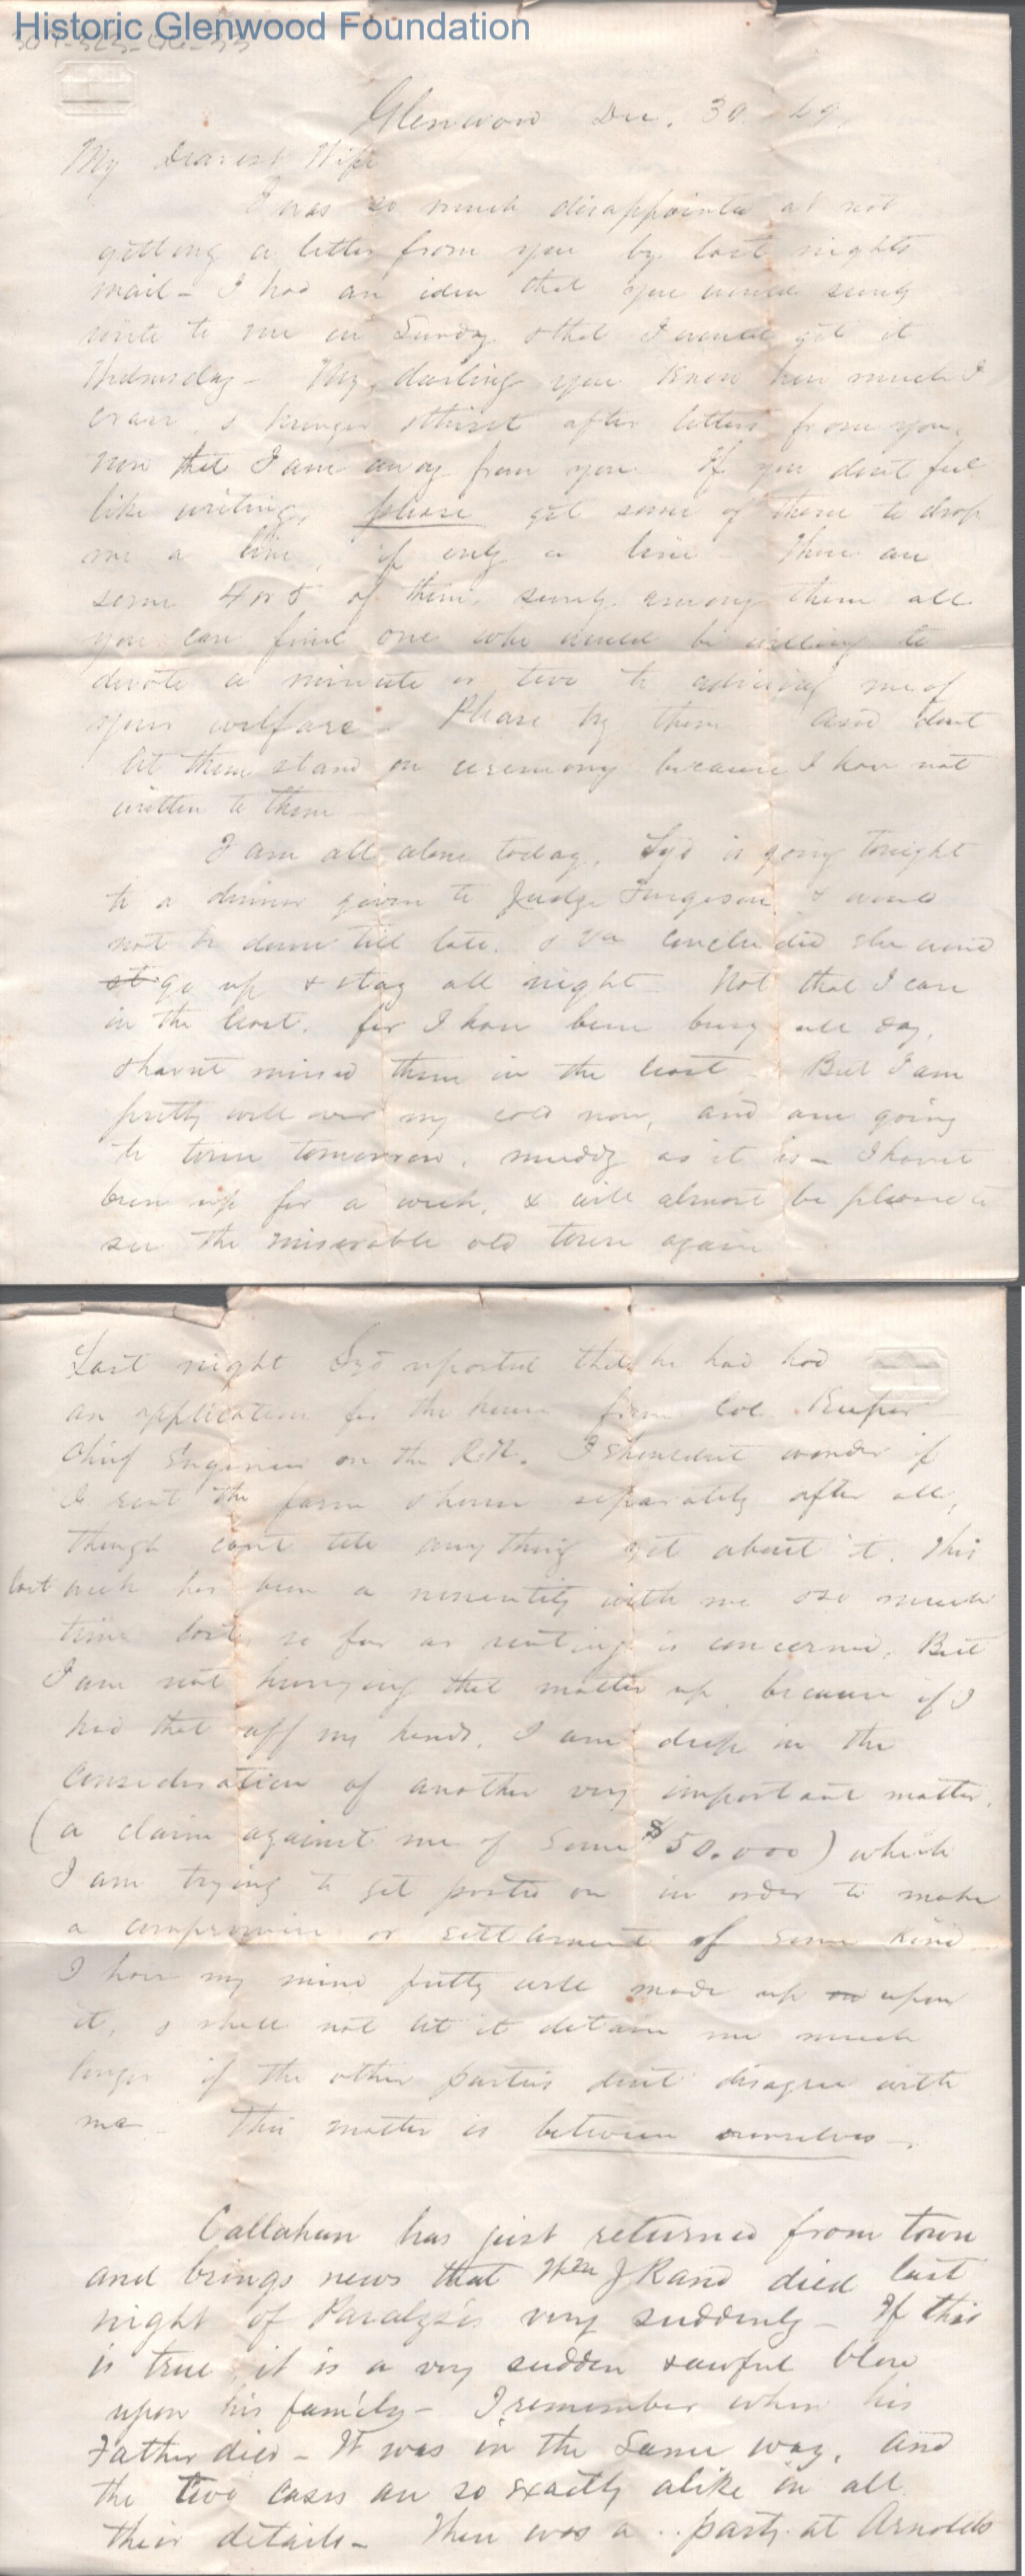 Historic Glenwood Foundation
Glenwood Dec. 30. 69.
My Dearest Wife
I was so much disappointed at not
getting a letter from you by last nights
mail - I had an idea that you would surely
write to me on Sunday & that I would get it
Wednesday - My darling you know how much I
crave, & hunger & thirst after letters from you,
now that I am away from you. If you dont feel
like writing, please get some of them to drop
me a line, if only a line - There are
some 4 or 5 of them, surely among them all
you can find one who would be willing to
devote a minute or two to me of
your welfare. Please try them and dont
let them stand on ceremony because I have not
written to them -
I am all alone today, Syd is going tonight
to a dinner given to Judge Furgeson & would
not be down till late. & Va concluded she would
st go up & stay all night - Not that I care
in the least, for I have been busy all day,
& havnt missed them in the least - But I am
pretty well over my cold now, and am going
to town tomorrow, muddy as it is - I havnt
been up for a week, & will almost be pleased to
see the miserable old town again
Last night Syd reported that he had had
an application for the house from Col.
Chief Engineer on the R.R. I shouldnt wonder if
I rent the farm & house separately after all,
though cant tell anything yet about it. This
last week has been a nonentity with me & so much
time lost, so far as renting is concerned. But
I am not hurrying that matter up, because if I
had that off my hands, I am deep in the
consideration of another very important matter,
(a claim against me of some $50.000) which
I am trying to get posted on in order to make
a compromise or settlement of some kind -
I have my mind pretty well made up on upon
it, & shall not let it detain me much
longer if the other parties dont disagree with
me - This matter is between ourselves -.
Callahan has just returned from town
and brings news that Wm J Rand died last
night of Paralysis very suddenly - If this
is true, it is a very sudden & awful blow
upon his family - I remember when his
Father died - It was in the same way, and
the two cases are so exactly alike in all
their details - There was a .. party at Arnolds